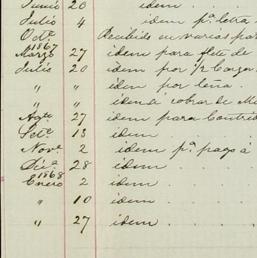 Junio 20 idem . . .
Julio 4 idem pª letra
Octe. Recibido en varias par
1867
Marzo 27 idem para flete de
Julio 20 idem por ½ Carga
" " idem por leña.
" " idem a cobrar de M
Agto 27 idem para Contrib
Sete. 13 idem . . .
Nove. 2 idem pª pago á
Dice. 28 idem . . .
1868
Enero 2 idem . . .
" 10 idem . . .
" 27 idem . . .